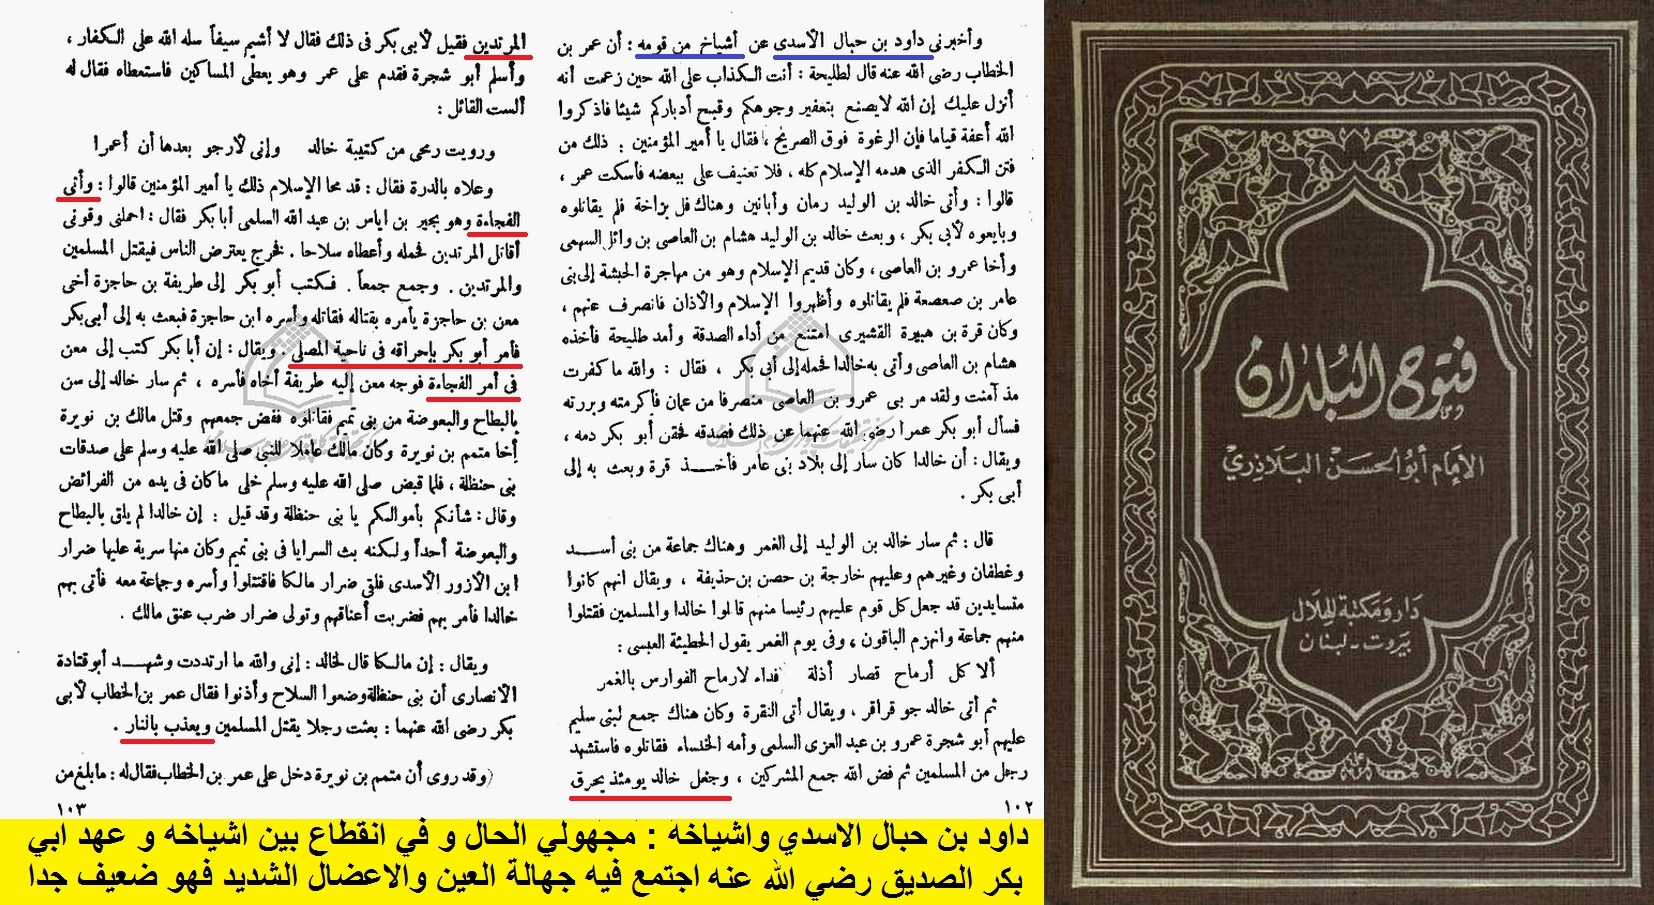 وأخبرني داود بن حبال الأسدى عن أشياخ من قومه : أن عمر بن
الخطاب رضى الله عنه قال لطليحة : أنت الكذاب على الله حين زعمت أنه
أنزل عليك إن الله لايصنع بتعفير وجوهكم وقبح أدباركم شيئا فاذكروا
الله أعفة قياما فإن الرغوة فوق الصريح ، فقال يا أمير المؤمنين : ذلك من
فتن الكفر الذى هدمه الإسلام كله ، فلا تعنيف على ببعضه فأسكت عمر ،
قالوا : وأتى خالد بن الوليد رمان وأبانين وهناك فل بزاخة فلم يقاتلوه
وبايعوه لأبى بكر ، وبعث خالد بن الوليد هشام بن العاصى بن وائل السهمى
وأخا عمرو بن العاصى ، وكان قديم الإسلام وهو من مهاجرة الحبشة إلى بنى
عامر بن صعصعة فلم يقاتلوه وأظهروا الإسلام والأذان فانصرف عنهم ،
وكان قرة بن هبيرة القشيرى امتنع من أداء الصدقة وأمد طليحة فأخذه
هشام بن العاصى وأتى به خالدا فحمله إلى أبى بكر ، فقال : والله ما كفرت
مذ آمنت ولقد مر بى عمرو بن العاصى منصرفا من عمان فأكرمته وبررته
فسأل أبو بكر عمرا رضى الله عنهما عن ذلك فصدقه فحقن أبو بكر دمه ،
ويقال : أن خالدا كان سار إلى بلاد بنى عامر فأخذ قرة وبعث به إلى
أبى بكر .
قال : ثم سار خالد بن الوليد إلى الغمر وهناك جماعة من بنى أسد
وغطفان وغيرهم وعليهم خارجة بن حصن بن حذيفة ، ويقال انهم كانوا
متسايدين قد جعل كل قوم عليهم رئيسا منهم قاتلوا خالدا والمسلمين فقتلوا
منهم جماعة وانهزم الباقون ، وفى يوم الغمر يقول الحطيئة العبسى :
ألا كل أرماح قصار أذلة فداء لارماح الفوارس بالغمر
ثم أتى خالد جو قراقر ، ويقال أتى النقرة وكان هناك جمع لبنى سليم
عليهم أبو شجرة عمرو بن عبد العزى السلمى وأمه الخنساء فقاتلوه فاستشهد
رجل من المسلمين ثم فض الله جمع المشركين ، وجعل خالد يومئذ يحرق
١٠٢
المرتدين فقيل لأبى بكر فى ذلك فقال لا أشيم سيفاً سله الله على الكفار ،
وأسلم أبو شجرة فقدم على عمر وهو يعطى المساكين فاستعطاه فقال له
ألست القائل :
ورويت رمحى من كتيبة خالد وإنى لأرجو بعدها أن أعمرا
وعلاه بالدرة فقال : قد محا الإسلام ذلك يا أمير المؤمنين قالوا : وأتى
الفجاءة وهو بجير بن اياس بن عبد الله السلمى أبا بكر فقال : احملنى وقونى
أقاتل المرتدين فحمله وأعطاه سلاحا . فخرج يعترض الناس فيقتل المسلمين
والمرتدين . وجمع جمعاً . فكتب أبو بكر إلى طريفة بن حاجزة أخى
معن بن حاجزة يأمره بقتاله فقاتله وأسره ابن حاجزة فبعث به إلى أبى بكر
فأمر أبو بكر بإحراقه فى ناحية المصلى . ويقال : إن أبا بكر كتب إلى معن
فى أمر الفجاءة فوجه معن إليه طريفة أخاه فأسره ، ثم سار خالد إلى من
بالبطاح والبعوضة من بنى تميم فقاتلوه ففض جمعهم وقتل مالك بن نويرة
أخا متمم بن نويرة وكان مالك عاملا للنبى صلى الله عليه وسلم على صدقات
بنى حنظلة ، فلما قبض صلى الله عليه وسلم خلى ماكان فى يده من الفرائض
وقال : شأنكم بأموالكم يا بنى حنظلة وقد قيل : إن خالدا لم يلق بالبطاح
والبعوضة أحداً ولكنه بث السرايا فى بنى تميم وكان منها سرية عليها ضرار
ابن الأزور الأسدى فلقى ضرار مالكا فاقتتلوا وأسره وجماعة معه فأتى بهم
خالدا فأمر بهم فضربت أعناقهم وتولى ضرار ضرب عنق مالك .
ويقال : إن مالكا قال لخالد : إنى والله ما ارتددت وشهد أبو قتادة
الأنصارى أن بنى حنظلة وضعوا السلاح وأذنوا فقال عمر بن الخطاب لأبى
بكر رضى الله عنهما : بعثت رجلا يقتل المسلمين ويعذب بالنار .
(وقد روى أن متمم بن نويرة دخل على عمر بن الخطاب فقال له : ما بلغ من
١٠٣
داود بن حبال الاسدي واشياخه : مجهولي الحال و في انقطاع بين اشياخه و عهد ابي
بكر الصديق رضي الله عنه اجتمع فيه جهالة العين والاعضال الشديد فهو ضعيف جدا
فتوح البلدان
الإمام أبو الحسن البلاذري
دار ومكتبة الهلال
بيروت - لبنان